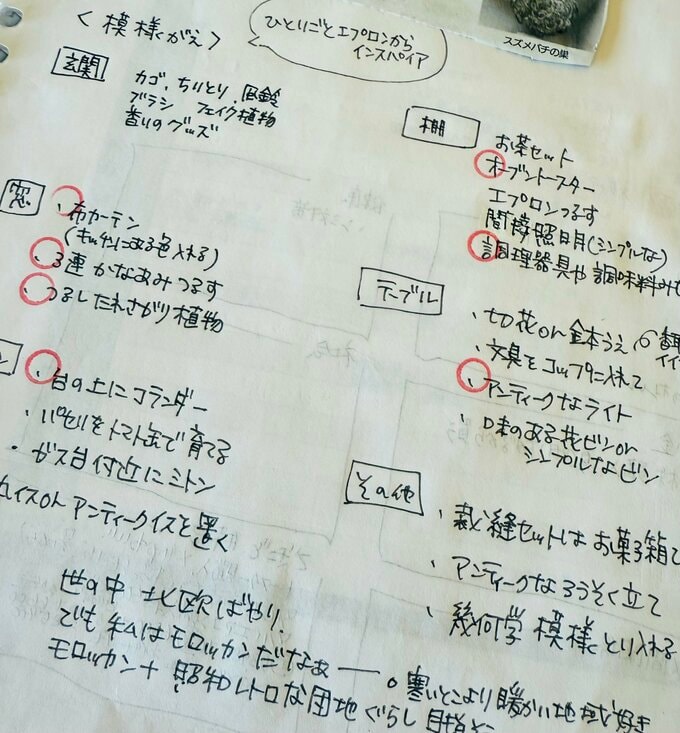 <模様がえ>
ひとりごとエプロンから
インスパイア
スズメバチの巣
玄関
カゴ、ちりとり、風鈴
ブラシ フェイク植物
香りのグッズ
窓
・布カーテン
(キッチンにある色入れる)
・3連かなあみつるす
・つるしたれさがり植物
ン
・台の上にコランダー
・パセリをトマト缶で育てる
・ガス台付近にミトン
丸イスorアンティークイスを置く
棚
お茶セット
オーブントースター
エプロンつるす
間接照明(シンプルな)
調理器具や調味料
テーブル
・切花or鉢うえ
・文具をコップに入れて
・アンティークなライト
・味のある花ビンor
シンプルなビン
その他
・裁縫セットはお菓子箱で
・アンティークなろうそく立て
・幾何学模様とり入れる
世の中北欧ばやり。
でも私はモロッカンだなぁー。寒いとこより暖かい地域好き
モロッカン+昭和レトロな団地ぐらし目指そ